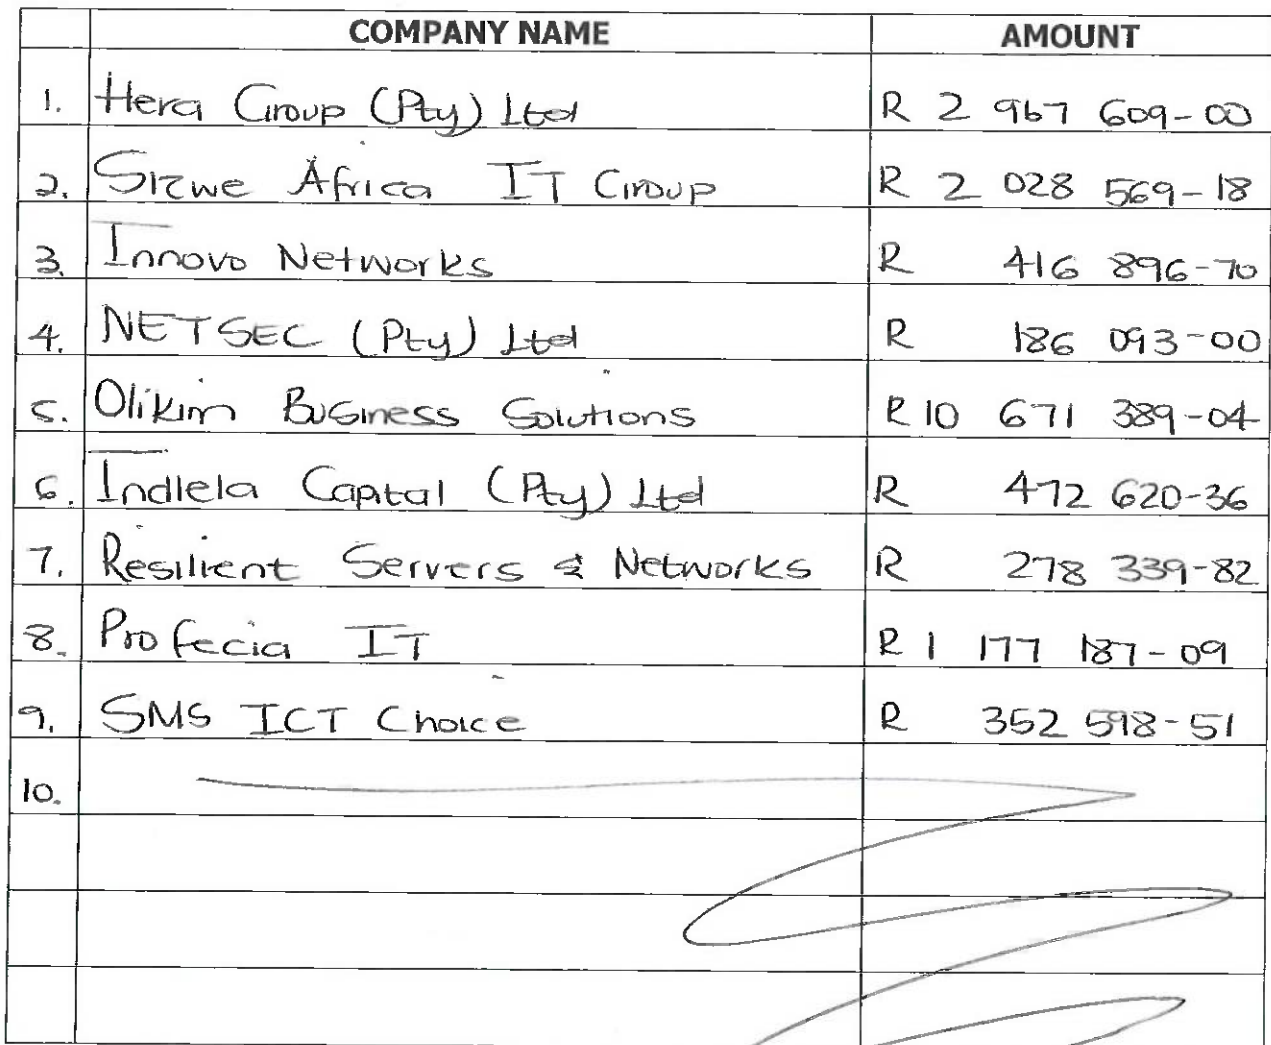 COMPANY NAME AMOUNT
1. Hera Group (Pty) Ltd R 2 967 609-00
2. Sizwe Africa IT Group R 2 028 569-18
3. Innovo Networks R 416 896-70
4. NETSEC (Pty) Ltd R 186 093-00
5. Olikim Business Solutions R 10 671 389-04
6. Indlela Capital (Pty) Ltd R 472 620-36
7. Resilient Servers & Networks R 278 339-82
8. Profecia IT R 1 177 187-09
9. SMS ICT Choice R 352 598-51
10.